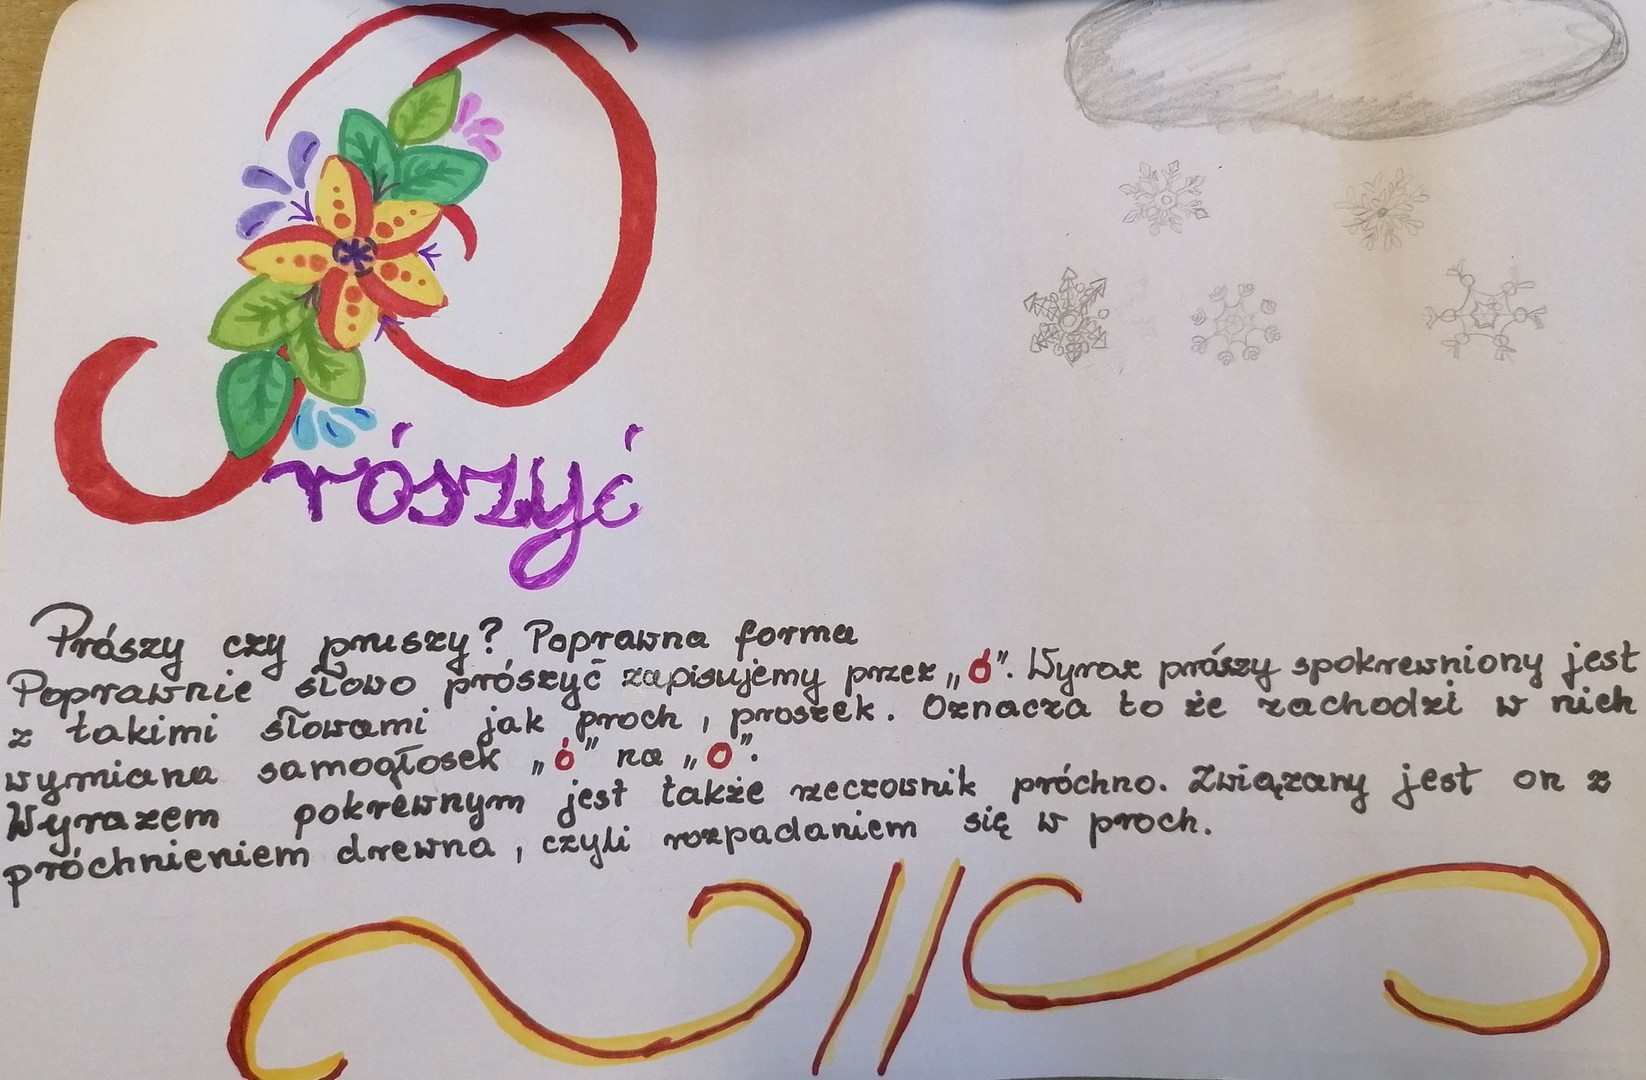 Prószyć
Prószy czy pruszy? Poprawna forma
Poprawnie słowo prószyć zapisujemy przez „ó”. Wyraz prószy spokrewniony jest
z takimi słowami jak proch, proszek. Oznacza to że zachodzi w nich
wymiana samogłosek „ó” na „o”.
Wyrazem pokrewnym jest także rzeczownik próchno. Związany jest on z
próchnieniem drewna, czyli rozpadaniem się w proch.